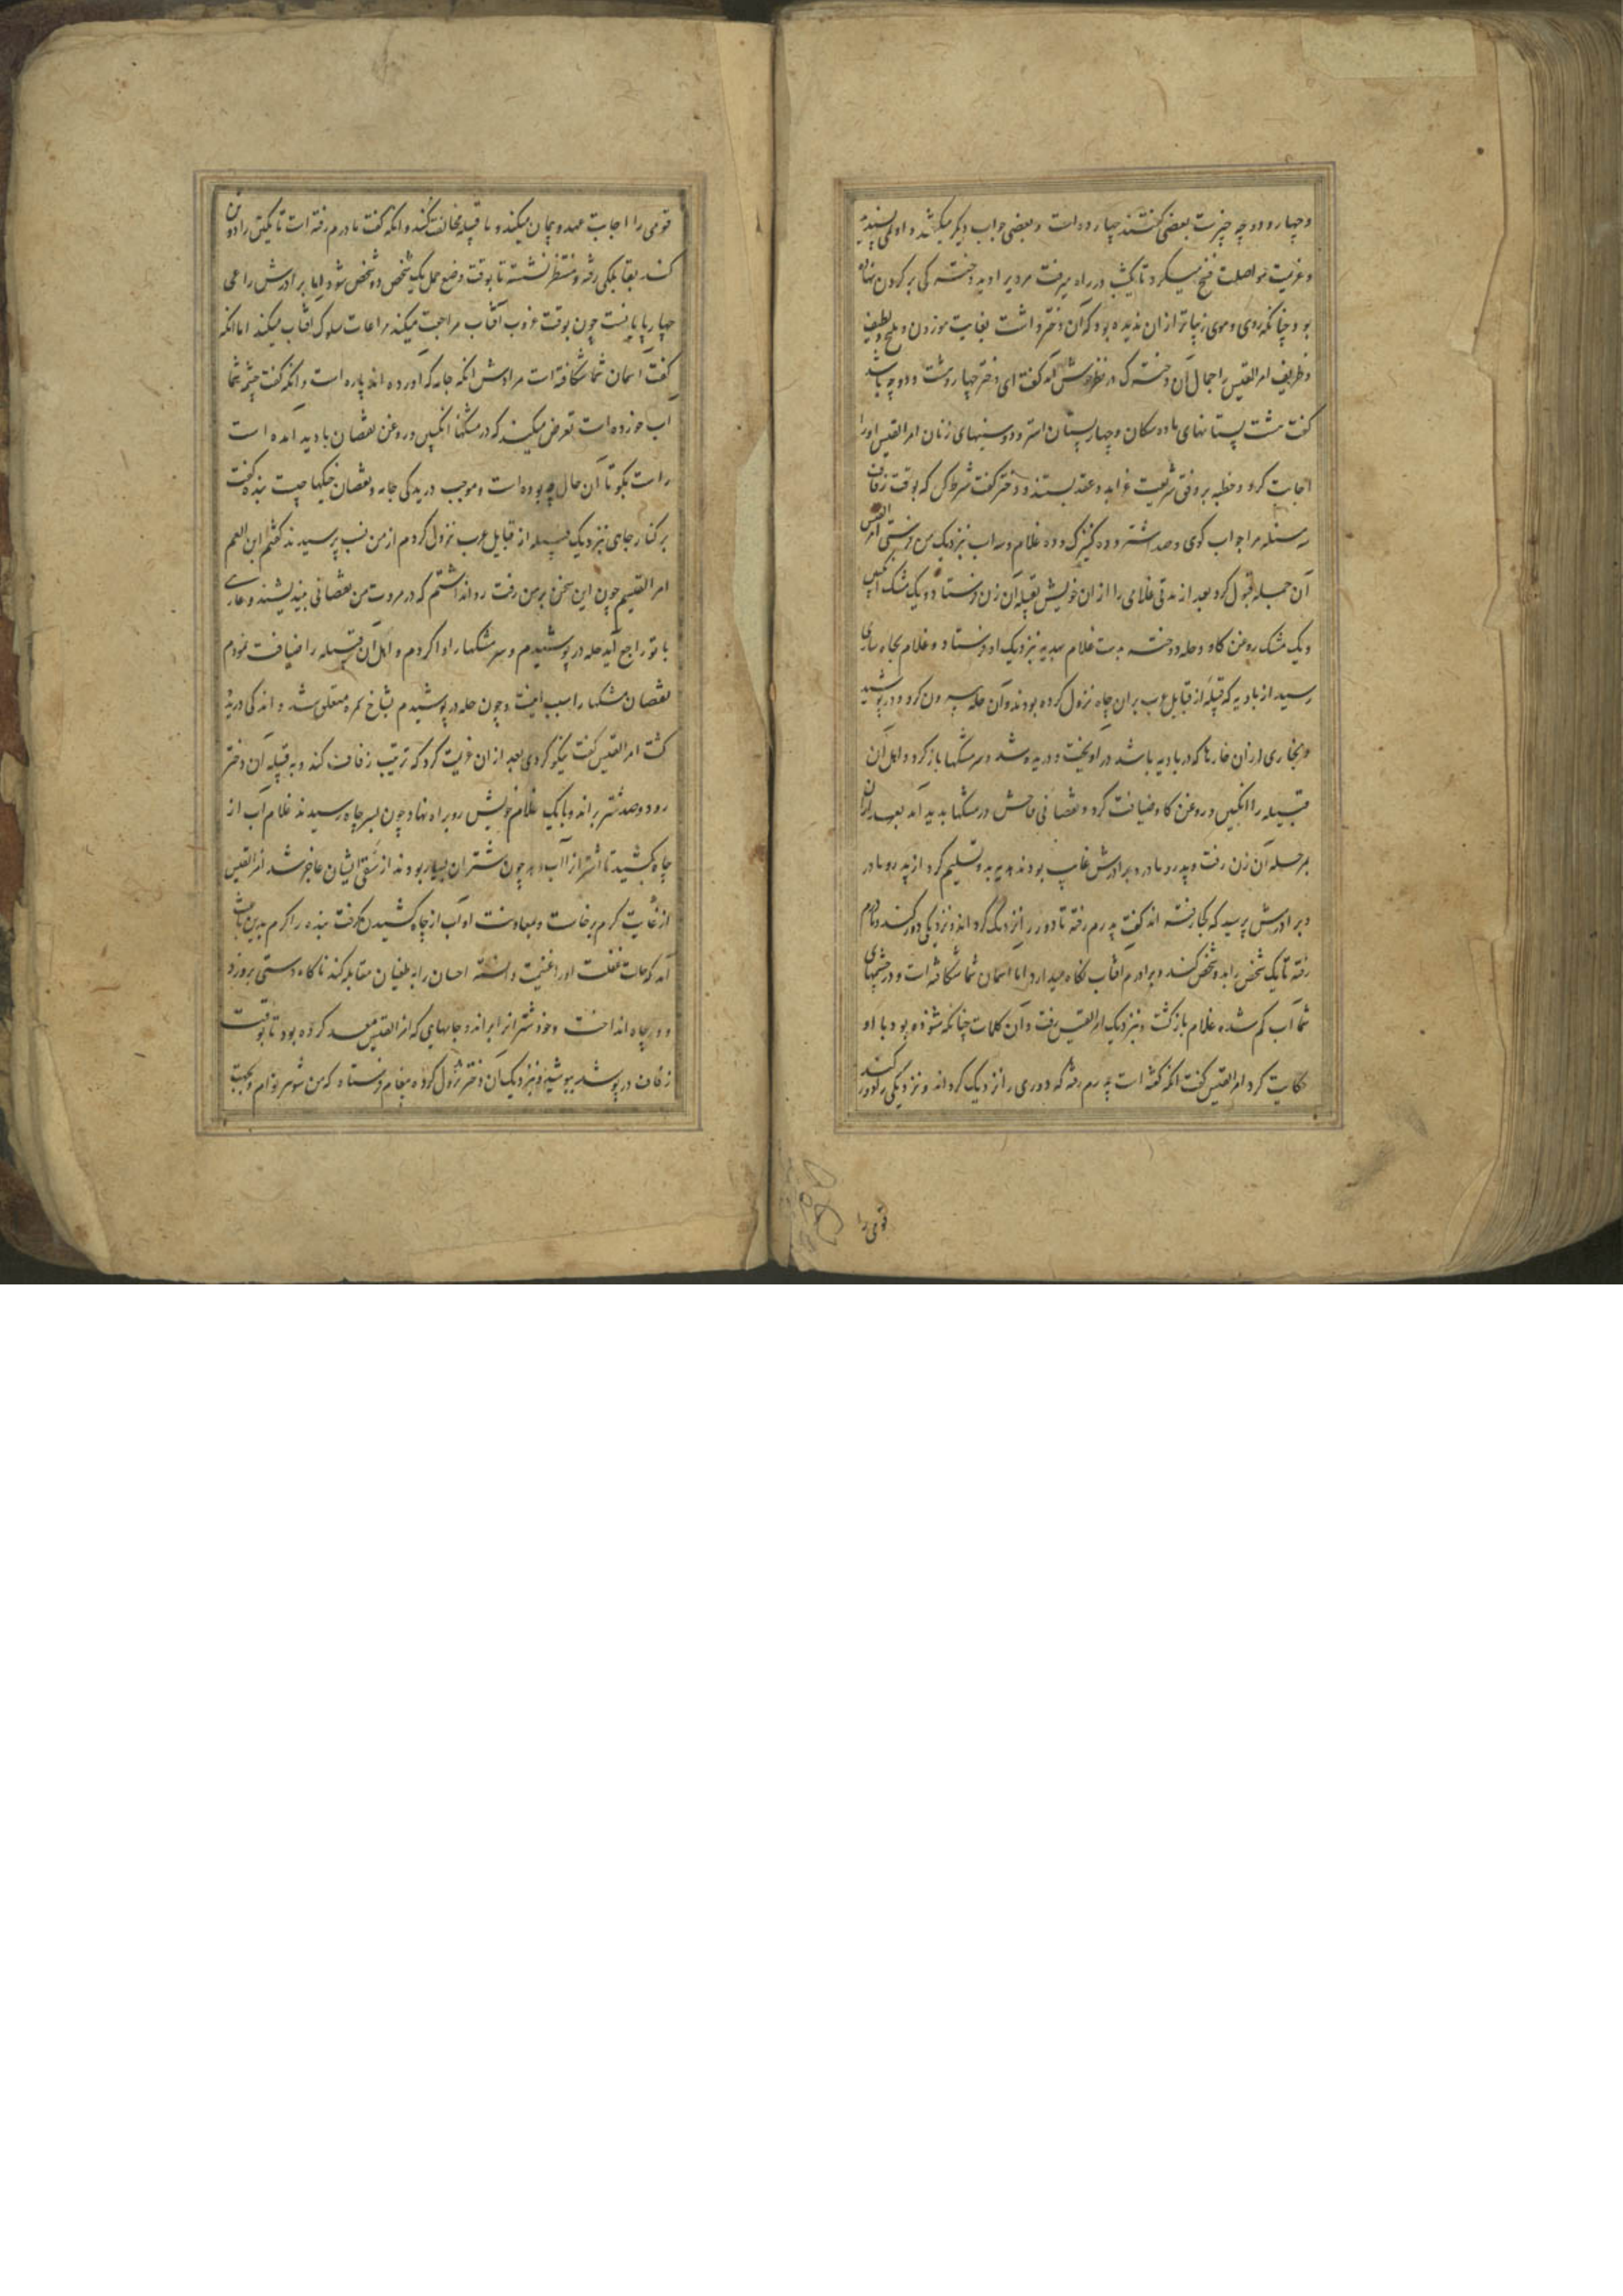 و چهار و دو چه چیزست بعضی گفتند چهارده است و بعضی جواب دیگر میگفتند و او نمی پسندید
و عزیمت مواصلت فسخ میکرد تا یکشب در راه میرفت مردیرا دید دخترکی بر گردن نهاده
بود چنانکه روی و موی زیباتر از آن ندیده بود که آن دختر داشت بغایت موزون و ملیح و لطیف
و ظریف امرالقیس را جمال آن دخترک در نظر خوش آمد گفت ای دختر چهار و هشت و دو چه باشد
گفت هشت پستانهای ماده سکان و چهار پستان اشتر و دو سینهای زنان امرالقیس او را
اجابت کرد و خطبه بر وفق شریعت غرا بد و عقد بستند و دختر گفت شرط کن که بوقت زفاف
سه مسئله مرا جواب گوی و صد اشتر و ده کنیزک و ده غلام و سه اسب نزدیک من فرستی امرالقیس
آن جمله قبول کرد بعد از مدتی غلامی را از آن خویش بقبیله آن زن فرستاد و یک مشک انگبین
و یک مشک روغن کاو و حله دوخته بدست غلام بهدیه نزدیک او فرستاد و غلام بچاه ساری
رسید از بادیه که قبیله از قبایل عرب بران چاه نزول کرده بودند و آن حله بیرون کرد و در پوشید
و بخاری از آن خارها که در بادیه باشد در آویخت و دریده شد و سر مشکها باز کرد و اهل آن
قبیله را انگبین و روغن کاو ضیافت کرد و نقصانی فاحش در مشکها بدید آمد بعد از آن
بر حله آن زن رفت و پدر و مادر و برادرش غایب بودند هدیه بدو تسلیم کرد از پدر و مادر
و برادرش پرسید که کجا رفته اند گفت پدرم رفته تا دور را نزدیک گرداند و نزدیکی دور کند و مادرم
رفته تا یک شخص را بدو شخص کند و برادرم آفتاب نگاه میدارد اما آسمان شما شکافته است و در چشمهای
شما آب کم شده غلام بازگشت و نزدیک امرالقیس رفت و آن کلمات چنانکه شنوده بود با او
حکایت کرد امرالقیس گفت آنکه گفته است پدرم رفته که دوری را نزدیک گرداند و نزدیکی را دور کند
قومی را
قومی را اجابت عهد و پیمان میکند و با قبیله مخالفت میکند و آنکه گفت مادرم رفته است تا یکتن را دو تن
کند بقابلکی رفته و منتظر نشسته تا بوقت وضع حمل یک شخص دو شخص شود اما برادرش راعی
چهارپایانست چون بوقت غروب آفتاب مراجعت میکند مراعات سلوک آفتاب میکند اما آنکه
گفت آسمان شما شکافته است مرادش آنکه جامه که آورده اند پاره است و آنکه گفت چشمه شما
آب خورده است تعرض میکند که در مشکها انگبین و روغن نقصان بادید آمده است
راست بگو تا آن حال چه بوده است و موجب دریدگی جامه و نقصان خیکها چیست بنده گفت
بر کنار جای نزدیک قبیله از قبایل عرب نزول کردم از من نسب پرسیدند گفتم ابن العم
امرالقیسم چون این سخن بر من رفت روا نداشتم که در مروت من نقصانی بیندیشند و عاری
با تو راجع آید حله در پوشیدم و سر مشکها را وا کردم و اهل آن قبیله را ضیافت نمودم
نقصان مشکها را سبب اینست و چون حله در پوشیدم بشاخ ثمره متعلق شد و اندکی دریده
گشت امرالقیس گفت نیکو کردی بعد از آن عزیمت کرد که ترتیب زفاف کند و به قبیله آن دختر
رود و صد شتر براند و با یک غلام خویش رو براه نهاد چون بسر چاه رسیدند غلام آب از
چاه بکشید تا اشتر انرا آب دهد چون شتران بسیار بودند از سقی ایشان عاجز شد امرالقیس
از غایت کرم برخاست و بمعاونت او آب از چاه کشیدن گرفت بنده را کرم بدین مثابت
آمد که حالت غفلت او را غنیمت دانسته احسان را به طغیان مقابله کند ناگاه دستی برو زد
و در چاه انداخت و خود شتر انرا براند و جامهای که امرالقیس معد کرده بود تا بوقت
زفاف در پوشد بپوشید و نزدیک آن دختر نزول کرد و پیغام فرستاد که من شوهر توام و بجهت